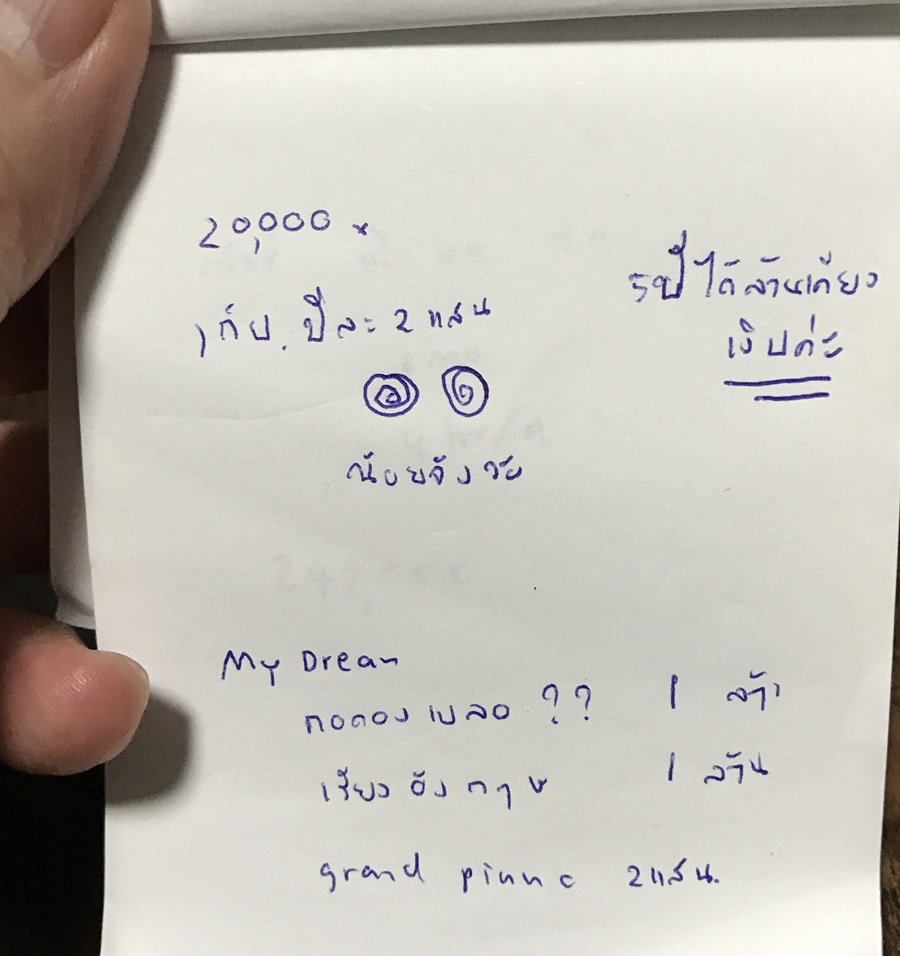 20,000 x
เก็บ. ปีละ 2 แสน
น้อยจังวะ
5ปี ได้ล้านเดียว
เงิบค่ะ
My Drean
ถอดอง เบลอ ?? 1 ล้า
เรียงอังกฤษ 1 ล้าน
grand pianno 2แสน.